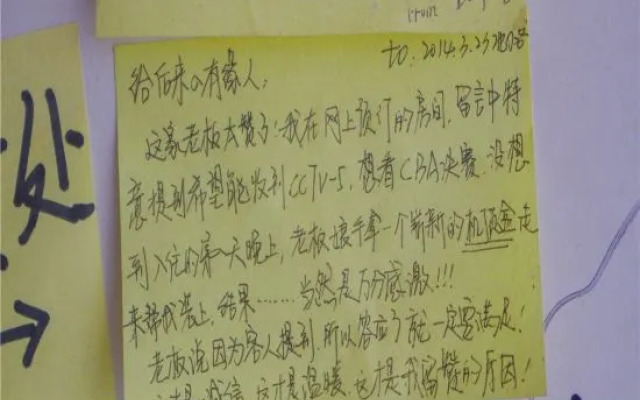 to: 2014.3.23
给后来的有缘人:
这家老板太赞了!我在网上预订的房间,留言中特
意提到希望能收到CCTV-5,想看CBA决赛.没想
到入住的第一天晚上,老板娘手拿一个崭新的机顶盒走
来帮我装上,结果……当然是万分感激!!!
老板说因为客人提到,所以答应了就一定要满足!
这才是诚信,这才是温暖,这才是我留赞的原因!
处
→